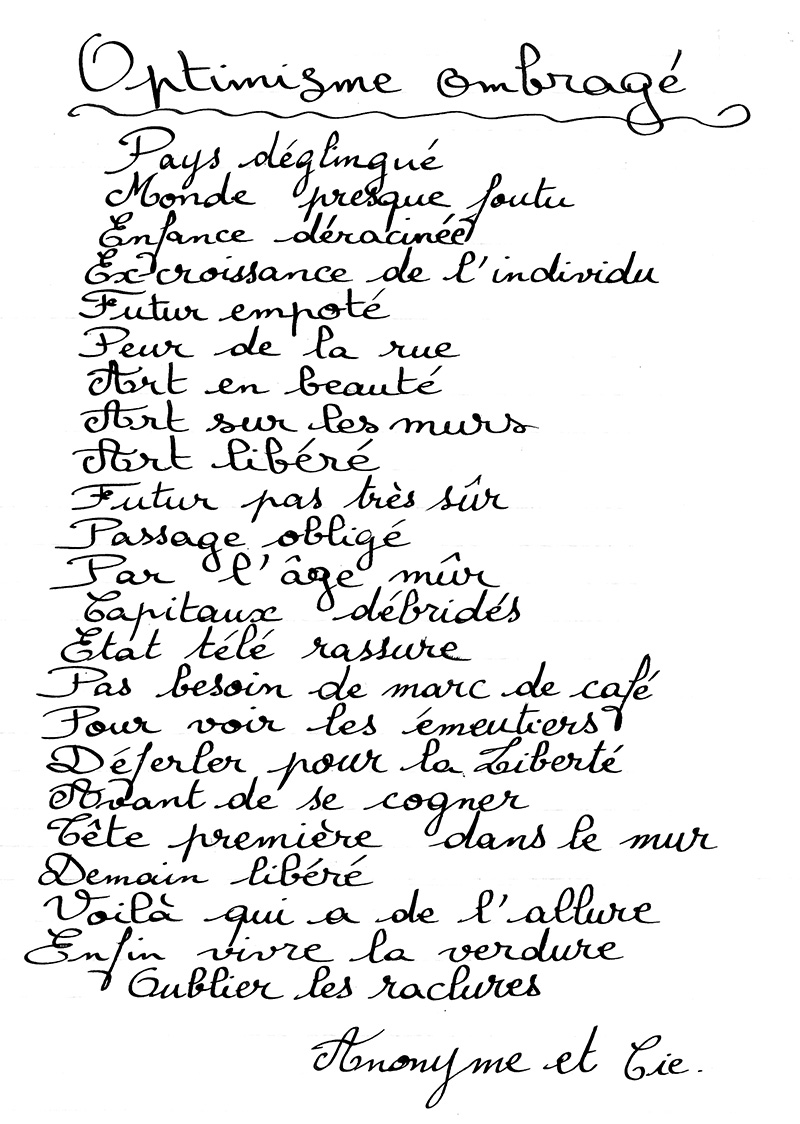 Optimisme ombragé
Pays déglingué
Monde presque foutu
Enfance déracinée
Excroissance de l'individu
Futur empoté
Peur de la rue
Art en beauté
Art sur les murs
Art libéré
Futur pas très sûr
Passage obligé
Par l'âge mûr
Capitaux débridés
Etat télé rassure
Pas besoin de marc de café
Pour voir les émeutiers
Déferler pour la Liberté
Avant de se cogner
Tête première dans le mur
Demain libéré
Voilà qui a de l'allure
Enfin vivre la verdure
Oublier les raclures
Anonyme et Cie.